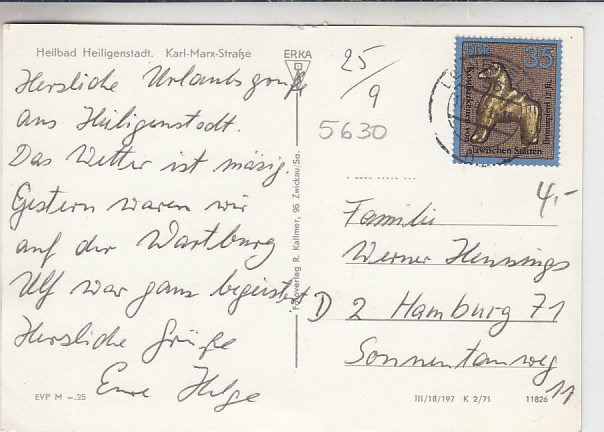 Heilbad Heiligenstadt. Karl-Marx-Straße
Herzliche Urlaubsgrüße
aus Heiligenstadt.
Das Wetter ist mäsig.
Gestern waren wir
auf der Wartburg
Ulf war ganz begeistert
Herzliche Grüße
Eure Helge
EVP M –.25
ERKA
25/9
5630
Fotoverlag R. Kallmer, 95 Zwickau/Sa.
DDR 35
slawischen Stätten
4,-
Familie
Werner Hennings
D 2 Hamburg 71
Sonnentauweg
11
III/18/197 K 2/71
11826